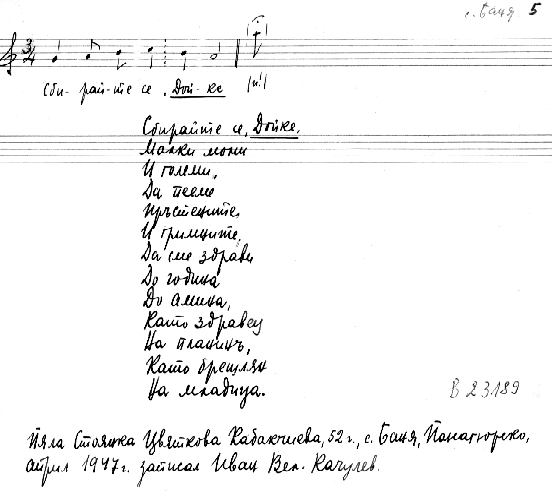 с. Баня 5
Сби- рай-те се, Дой-ке (и!)
Сбирайте се, Дойке,
Малки моми
И големи,
Да пееме
Пръстените
И гривните,
Да сме здрави
До година
До амина,
Като здравец
На планинъ,
Като брешлян
На младица.
В 23189
Пяла Стоянка Цвяткова Кабакчиева, 52 г., с. Баня, Панагюрско,
април 1947 г. записал Иван Вел. Качулев.